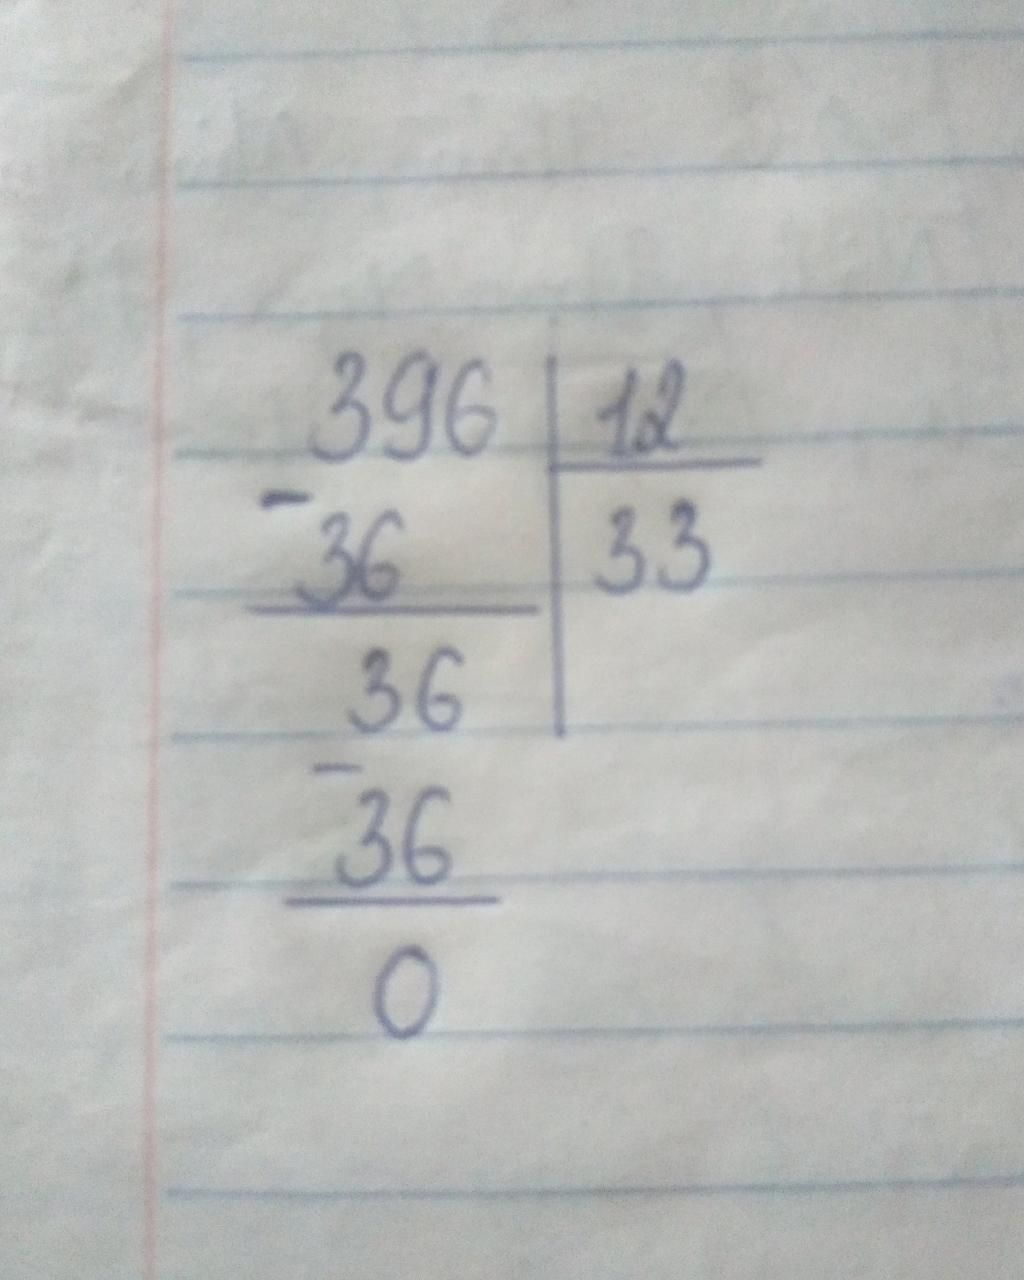 396 12
- 36 33
36
- 36
0